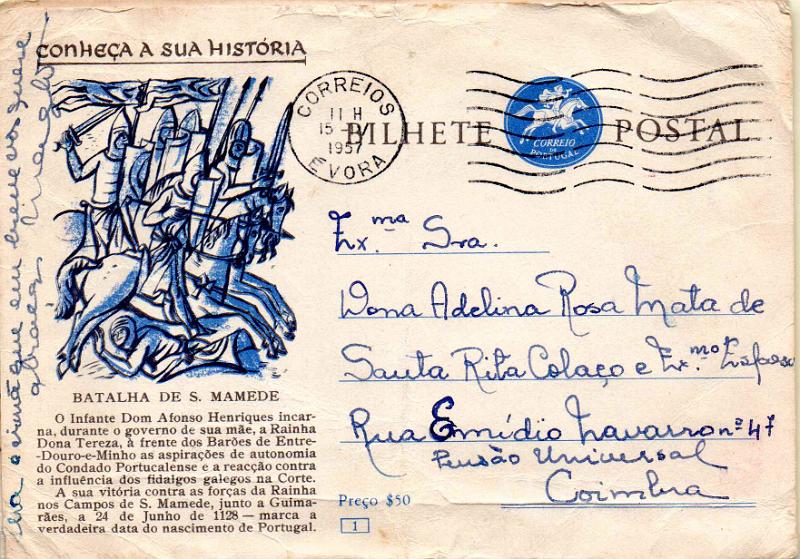 CONHEÇA A SUA HISTÓRIA
CORREIOS
11 H
15
1957
ÉVORA
BILHETE POSTAL
CORREIO
DE
PORTUGAL
BATALHA DE S. MAMEDE
O Infante Dom Afonso Henriques incar-
na, durante o governo de sua mãe, a Rainha
Dona Tereza, à frente dos Barões de Entre-
-Douro-e-Minho as aspirações de autonomia
do Condado Portucalense e a reacção contra
a influência dos fidalgos galegos na Corte.
A sua vitória contra as forças da Rainha
nos Campos de S. Mamede, junto a Guima-
rães, a 24 de Junho de 1128 — marca a
verdadeira data do nascimento de Portugal.
Ex.ma Sra.
Dona Adelina Rosa Mata de
Santa Rita Colaço e Ex.mo Esposo
Rua Emídio Navarro nº 47
Pensão Universal
Coimbra
Preço $50
1
que em breve vos quere
abraçar